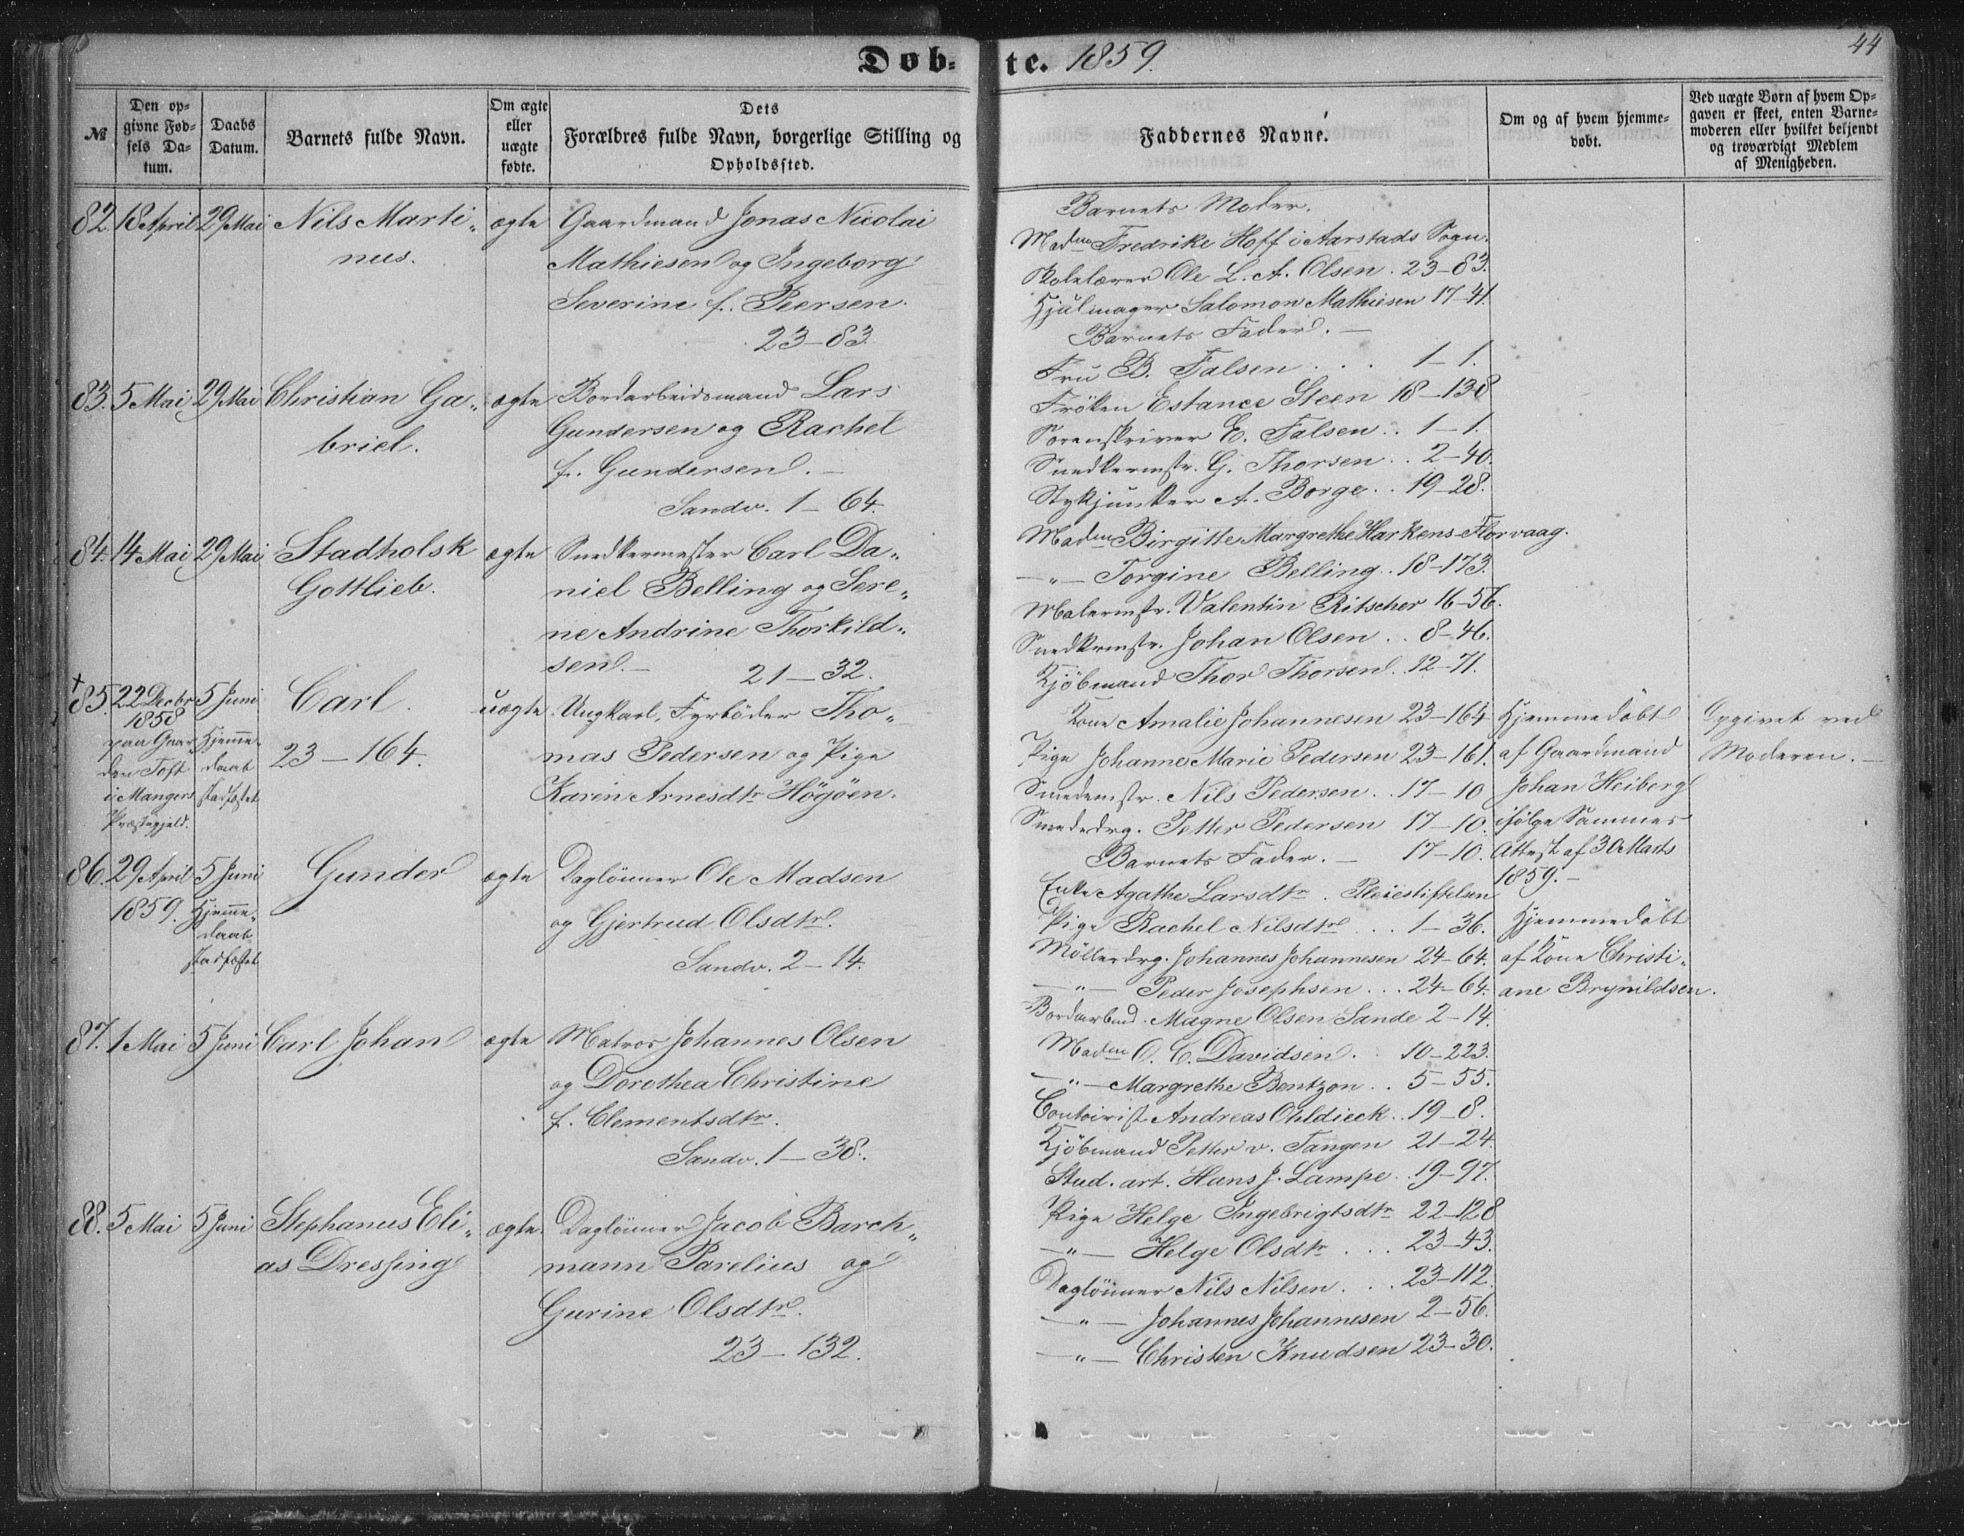 Døb-
te. 1859.
44
№
Den op-
givne Fød-
sels Da-
tum.
Daabs
Datum.
Barnets fulde Navn.
Om ægte
eller
uægte
fødte.
Dets
Forældres fulde Navn, borgerlige Stilling og
Opholdssted.
Faddernes Navne.
Om og af hvem hjemme-
døbt.
Ved uægte Børn af hvem Op-
gaven er skeet, enten Barne-
moderen eller hvilket bekjendt
og troværdigt Medlem
af Menigheden.
82. 18 April 29 Mai Nils Marti-
nus.
ægte
Gaardmand Jonas Nicolai
Mathiesen og Ingeborg
Severine f. Peersen.
23-83.
Barnets Moder.
Madm Fredrike Hoff i Aarstads Sogn.
Skolelærer Ole L. A. Olsen. 23-83.
Hjulmager Salomon Mathiesen 17-41.
Barnets Fader. -
83. 5 Mai 29 Mai Christian Ga-
briel.
ægte
Bordarbeidsmand Lars
Gundersen og Rachel
f. Gundersen. -
Sandv. 1-64.
Fru B. Falsen . . . 1-1.
Frøken Estance Steen 18-138
Sorenskriver E. Falsen . . 1-1.
Snedkermstr. G. Thorsen . . 2-40.
Stykjunker A. Borge . . 19-28.
84. 14 Mai 29 Mai Stadholsk
Gottlieb.
ægte
Snedkermester Carl Da-
niel Belling og Sere-
ne Andrine Thorkild-
sen. - 21-32.
Madm Birgitte Margrethe Harkens-Florvaag.
-"- Torgine Belling . . 18-173.
Malermstr. Valentin Ritscher 16-56.
Snedkrmstr. Johan Olsen . . 8-46.
Kjöbmand Thor Thorsen. 12-71.
†
85. 22 Decbr
1858
paa Gaar-
den Toft
i Mangers
Præstegjeld.
5 Juni
Hjemme-
daab
stadfæstet
Carl.
23-164.
uægte
Ungkarl, Fyrböder Tho-
mas Pedersen og Pige
Karen Arnesdtr Högöen.
Kone Amalie Johannesen 23-164
Pige Johanne Marie Pedersen 23-161.
Smedemstr. Nils Pedersen . . 17-10
Smededrg. Petter Pedersen 17-10.
Barnets Fader. - 17-10.
Hjemmedöbt
af Gaardmand
Johan Heiberg
ifölge Sammes
Attest af 30 Marts
1859. -
Opgivet ved
Moderen. -
86. 29 April
1859.
5 Juni
Hjemme-
daab
stadfæstet
Gunder
ægte
Daglönner Ole Madsen
og Gjertrud Olsdtr.
Sandv. 2-14.
Enke Agathe Larsdtr. Pleiestiftelsen
Pige Rachel Nilsdtr . . . 1-36.
Möllerdrg. Johannes Johannesen 24-64.
-"- Peder Josephsen . . . 24-64.
Bordarbmd. Magne Olsen Sande 2-14.
Hjemmedöbt
af Kone Christi-
ane Brynildsen.
87. 1 Mai 5 Juni Carl Johan
ægte
Matros Johannes Olsen
og Dorothea Christine
f. Clementsdtr.
Sandv. 1-38.
Madm O. C. Davidsen . . 10-223.
-"- Margrethe Bentzon . . 5-55.
Contoirist Andreas Ohldieck . . 19-8.
Kjöbmand Petter v. Tangen 21-24
Stud. art. Hans J. Lampe . . 19-97.
88. 5 Mai 5 Juni Stephanus Eli-
as Dressing
ægte
Daglönner Jacob Barch-
mann Parelius og
Gurine Olsdtr.
23-132.
Pige Helge Ingebrigtsdtr 22-128
-"- Helge Olsdtr . . . 23-43.
Daglönner Nils Nilsen . . . 23-112.
-"- Johannes Johannesen 2-56.
-"- Christen Knudsen 23-30.